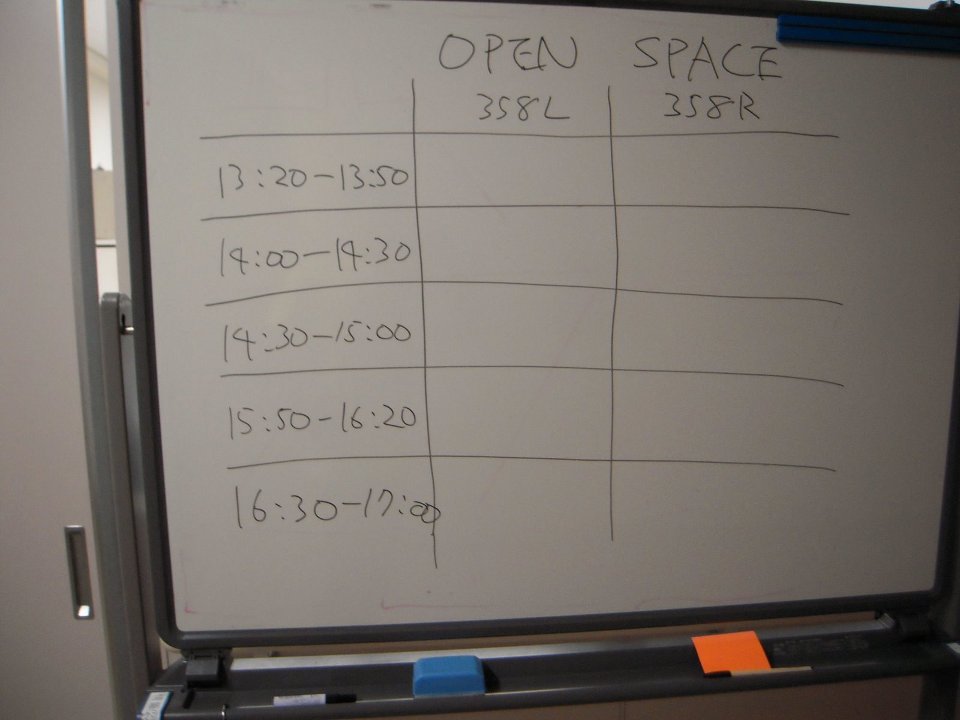 OPEN SPACE
358L 358R
13:20-13:50
14:00-14:30
14:30-15:00
15:50-16:20
16:30-17:00